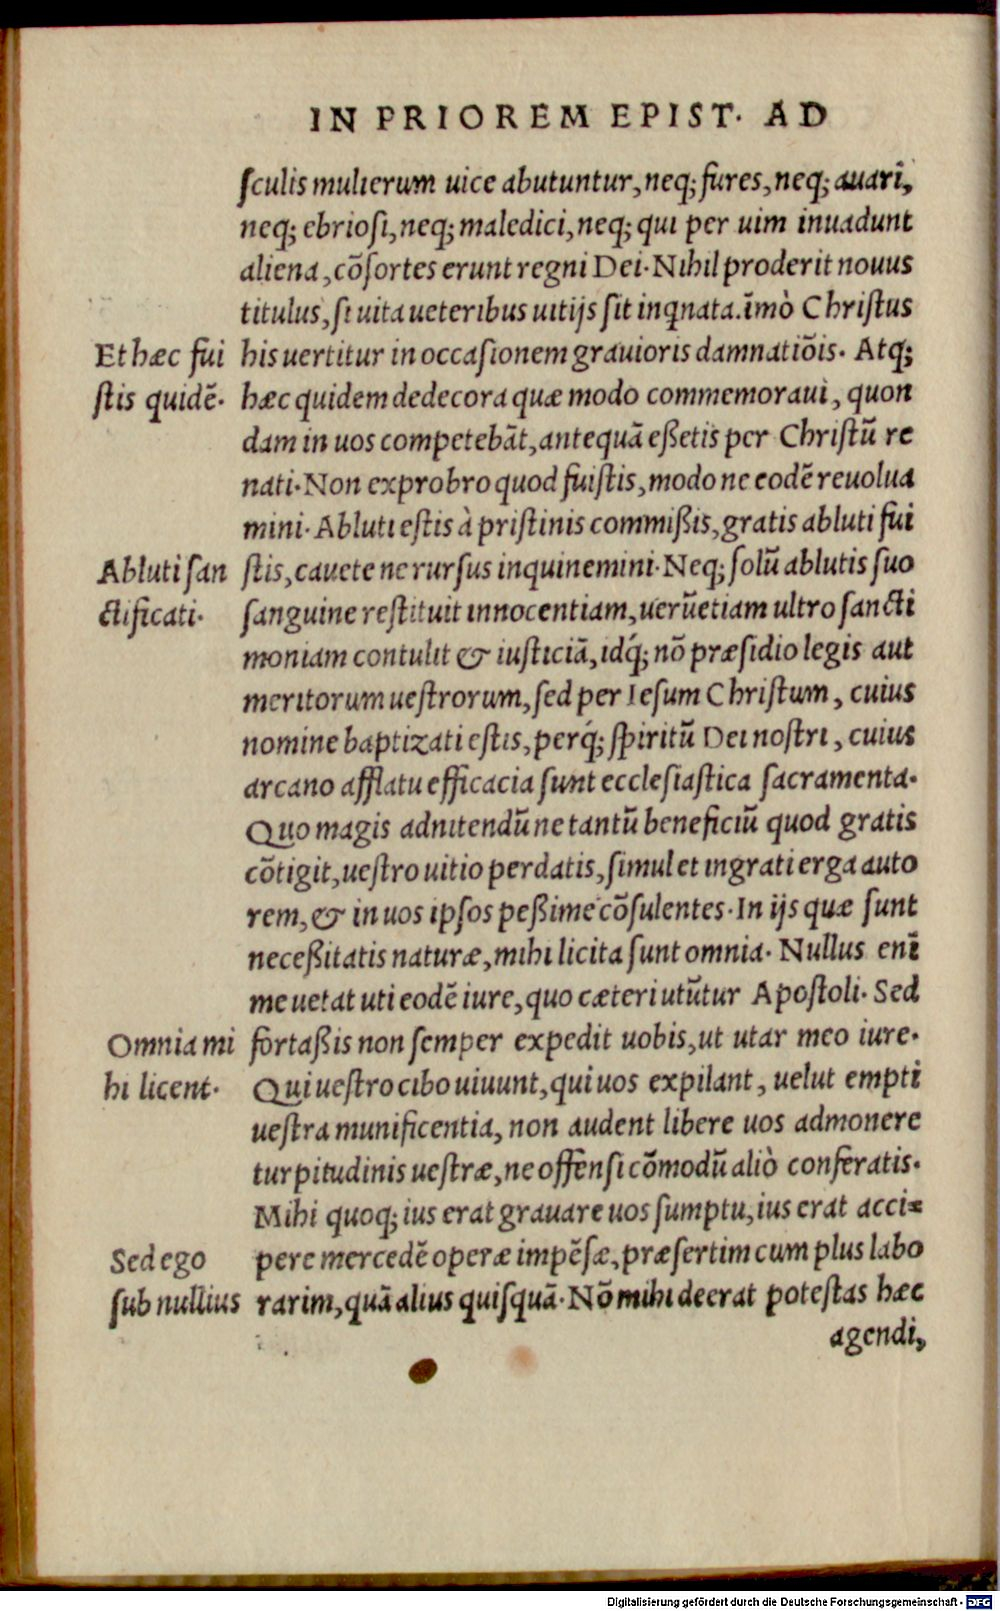 IN PRIOREM EPIST. AD
ſculis mulierum uice abutuntur, neq; fures, neq; auari,
neq; ebrioſi, neq; maledici, neq; qui per uim inuadunt
aliena, cõſortes erunt regni Dei. Nihil proderit nouus
titulus, ſi uita ueteribus uitijs ſit inqnata. ĩmò Chriſtus
Et hæc fui
his uertitur in occaſionem grauioris damnatiõis. Atq;
ſtis quidẽ.
hæc quidem dedecora quæ modo commemoraui, quon
dam in uos competebãt, antequã eßetis per Chriſtũ re
nati. Non exprobro quod fuiſtis, modo ne eodẽ reuolua
mini. Abluti eſtis à priſtinis commißis, gratis abluti fui
Abluti ſan
ſtis, cauete ne rurſus inquinemini. Neq; ſolũ ablutis ſuo
ctificati.
ſanguine reſtituit innocentiam, uerũetiam ultro ſancti
moniam contulit & iuſticiã, idq́; nõ præſidio legis aut
meritorum ueſtrorum, ſed per Ieſum Chriſtum, cuius
nomine baptizati eſtis, perq́; ſpiritũ Dei noſtri, cuius
arcano afflatu efficacia ſunt eccleſiaſtica ſacramenta.
Quo magis adnitendũ ne tantũ beneficiũ quod gratis
cõtigit, ueſtro uitio perdatis, ſimul et ingrati erga auto
rem, & in uos ipſos peßime cõſulentes. In ijs quæ ſunt
neceßitatis naturæ, mihi licita ſunt omnia. Nullus enĩ
me uetat uti eodẽ iure, quo cæteri utũtur Apoſtoli. Sed
Omnia mi
fortaßis non ſemper expedit uobis, ut utar meo iure.
hi licent.
Qui ueſtro cibo uiuunt, qui uos expilant, uelut empti
ueſtra munificentia, non audent libere uos admonere
turpitudinis ueſtræ, ne offenſi cõmodũ aliò conferatis.
Mihi quoq; ius erat grauare uos ſumptu, ius erat acci=
Sed ego
pere mercedẽ operæ impẽſæ, præſertim cum plus labo
ſub nullius
rarim, quã alius quiſquã. Nõ mihi deerat poteſtas hæc
agendi,
Digitalisierung gefördert durch die Deutsche Forschungsgemeinschaft - DFG